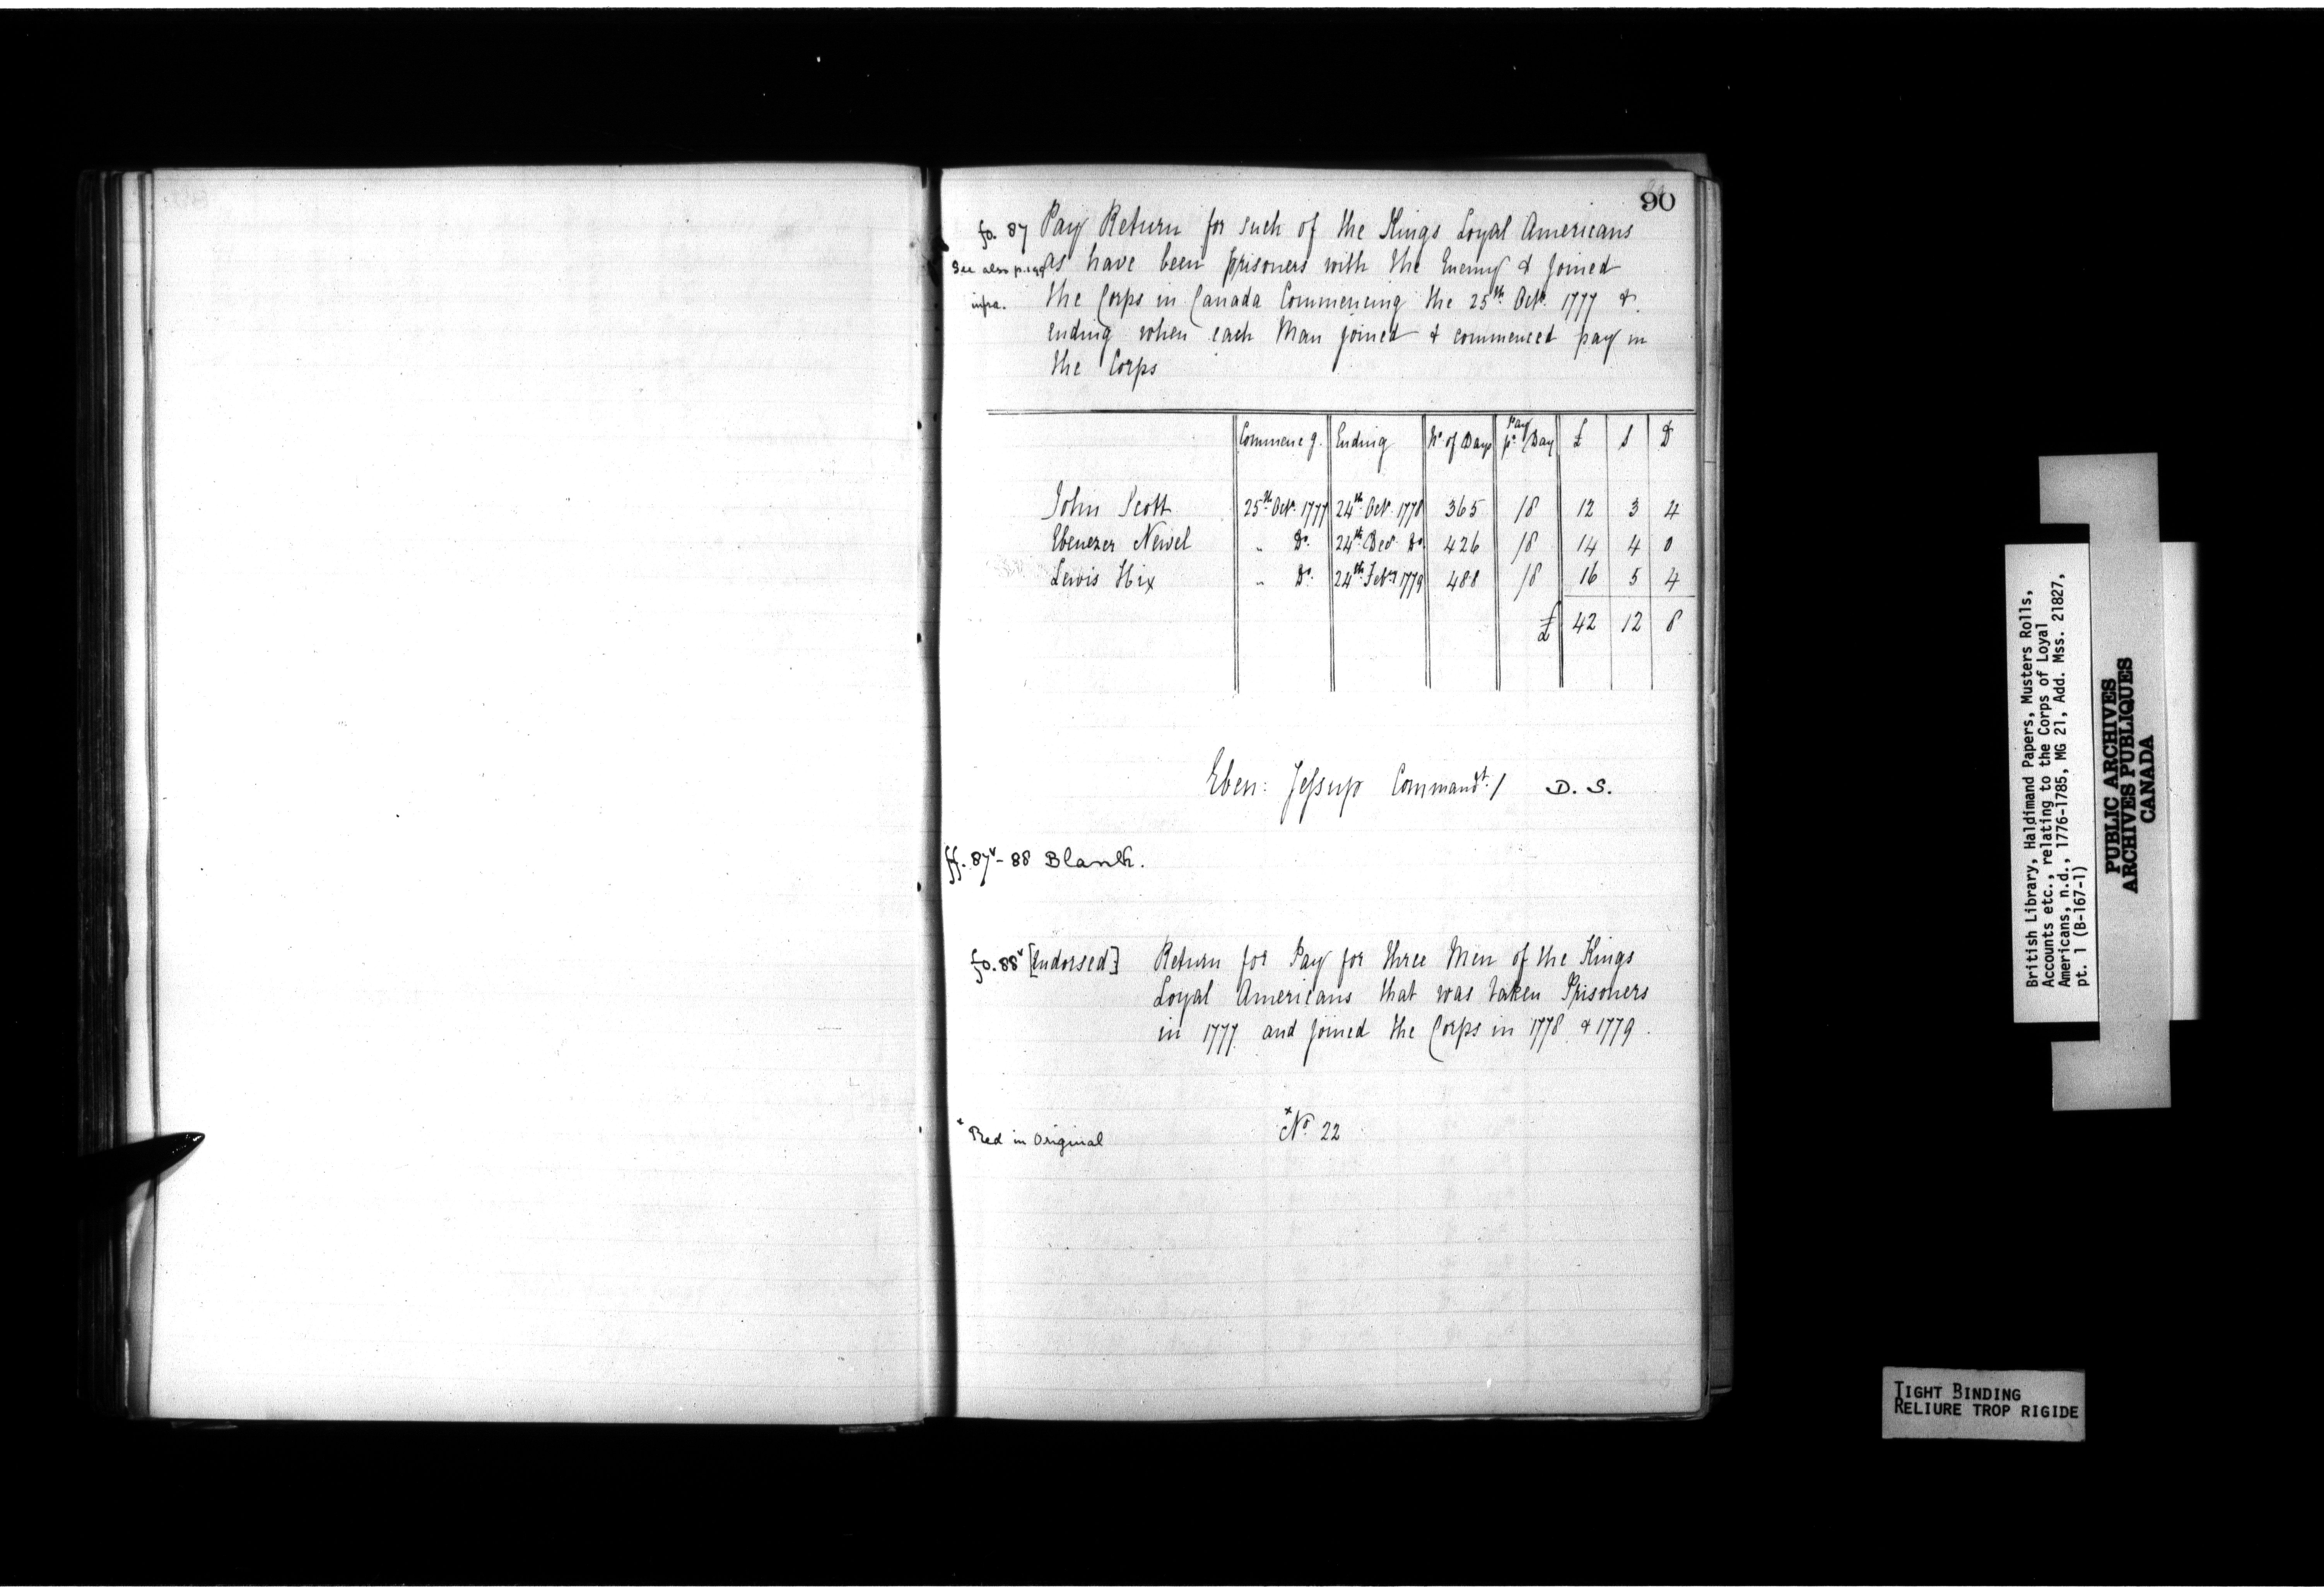 90
fo. 87 Pay Return for such of the Kings Loyal Americans
See also p. as have been prisoners with the Enemy & Joined
infra. the Corps in Canada Commencing the 25th Octr. 1777 &
Ending when each Man joined & commenced pay in
the Corps
Commencg. Ending No. of Days Pay pr. Day £ S D
John Scott 25th Octr. 1777 24th Octr. 1778 365 /8 12 3 4
Ebenezer Newel " Do. 24th Decr. Do. 426 /8 14 4 0
Lewis Hix " Do. 24th Febry 1779 488 /8 16 5 4
£ 42 12 8
Eben: Jessup Commandt./ D.S.
ff. 87v - 88 Blank.
fo. 88v [Endorsed] Return for Pay for three Men of the Kings
Loyal Americans that was taken Prisoners
in 1777 and joined the Corps in 1778 & 1779.
x Red in Original xNo. 22
British Library, Haldimand Papers, Musters Rolls,
Accounts etc., relating to the Corps of Loyal
Americans, n.d., 1776-1785, MG 21, Add. Mss. 21827,
pt. 1 (B-167-1)
PUBLIC ARCHIVES
ARCHIVES PUBLIQUES
CANADA
TIGHT BINDING
RELIURE TROP RIGIDE